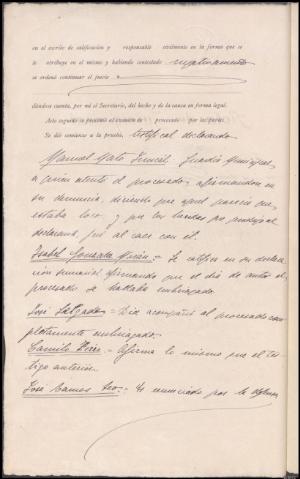 en el escrito de calificación y responsable civilmente en la forma que se
le atribuye en el mismo y habiendo contestado negativamente
se ordenó continuar el juicio
dándose cuenta, por mí el Secretario, del hecho y de la causa en forma legal.
Acto seguido se procedió al examen de procesado por las partes.
Se dió comienzo a la prueba, testifical declarando
Manuel Gato Guardia Municipal,
a quien atentó el procesado, afirmandose en
su denuncia, diciendo que aquel parecía que
estaba loco, y que las heridas que produjo al
declarante, fué al caer con él.
Isabel Gonzalez .- Se ratifica en su declar
ación sumarial afirmando que el día de autos el
procesado se hallaba embriagado.
José Salgado.- Que acompañó al procesado com
pletamente embriagado.
Camilo Pérez.- Afirma lo mismo que el tes
tigo anterior.
José Ramos .- Es renunciado por la defensa